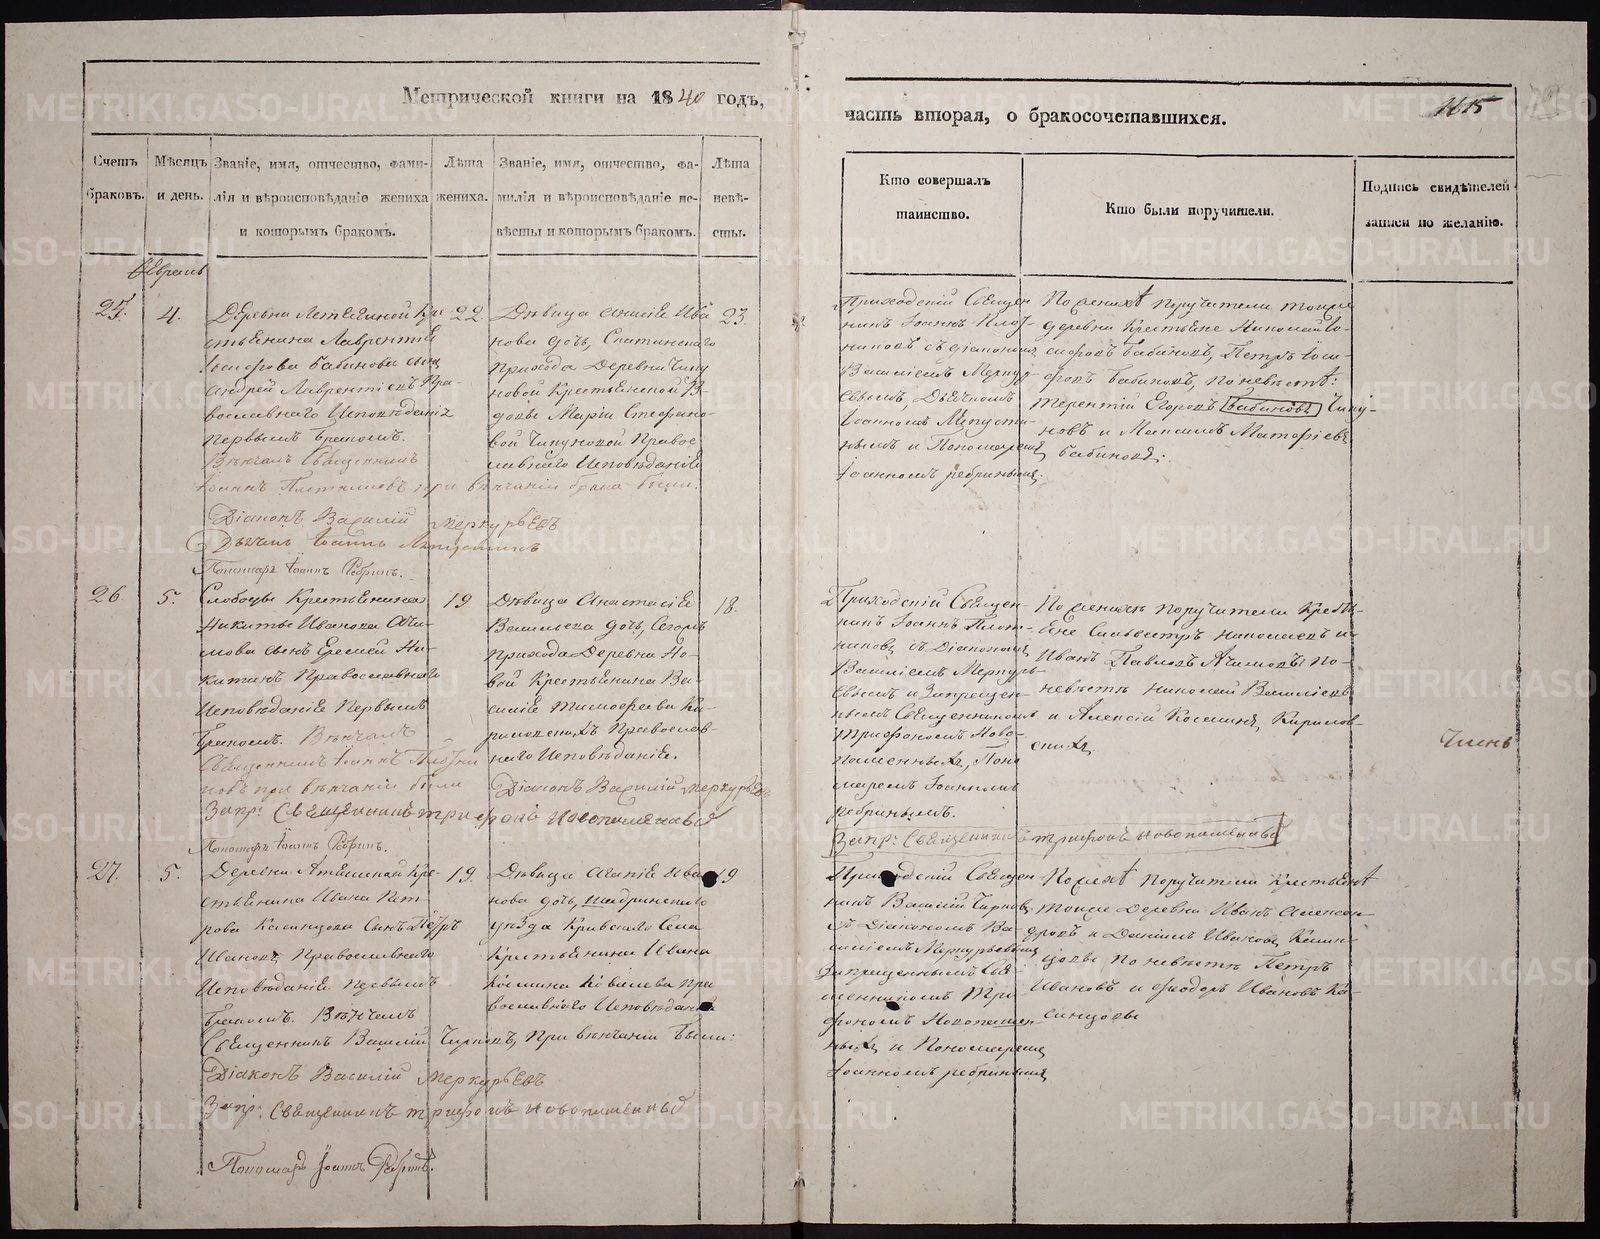 Метрической книги на 1840 годъ,
часть вторая, о бракосочетавшихся.
Счетъ браковъ.
Мѣсяцъ и день.
Званіе, имя, отчество, фами-
лія и вѣроисповѣданіе жениха
и которымъ бракомъ.
Лѣта
жениха.
Званіе, имя, отчество, фа-
милія и вѣроисповѣданіе не-
вѣсты и которымъ бракомъ.
Лѣта
невѣ-
сты.
Кто совершалъ
таинство.
Кто были поручители.
Подпись свидѣтелей
записи по желанію.
Февраль
25.
4.
Деревни Кре-
стьянина Лаврентія
Іосифова Бабинова сынъ
Андрей Лаврентіевъ Пра-
вославнаго Исповѣданія
первымъ бракомъ.
Вѣнчалъ Священникъ
Іоаннъ Плотниковъ при вѣнчаніи брака были:
Діаконъ Василій Меркурьевъ
Дьячекъ Іоаннъ
Пономарь Іоаннъ Ребринъ.
22
Дѣвица Ива
нова дочь,
прихода Деревни Чипу
новой Крестьянской В-
довы Маріи Стефано-
вой Чипуновой Правос
лавнаго Исповѣданія
23.
Приходскій Священ
никъ Іоаннъ Плот-
никовъ съ діакономъ
Василіемъ Меркур-
евымъ, Дьячкомъ
Іоанномъ
нымъ и Пономаремъ
Іоанномъ Ребринымъ.
По женихѣ поручители тойже
деревни Крестьяне Николай Іо-
сифовъ Бабиновъ, Петръ Іоси-
фовъ Бабиновъ, по невѣстѣ:
Терентій Егоровъ Бабиновъ Чипу-
новъ и Максимъ Матфіевъ
Бабиновъ.
26
5.
Слободы Крестьянина
Никиты Иванова
сынъ Еремей Ни-
китинъ Православнаго
Исповѣданія Первымъ
бракомъ. Вѣнчалъ
Священникъ Іоаннъ Плотни
ковъ при вѣнчаніи были
Запр: Священникъ Трифонъ Новопашенный
Пономарь Іоаннъ Ребринъ.
19
Дѣвица Анастасія
Васильева дочь,
прихода Деревни Но-
вой Крестьянина Ва-
силія Тимофеева Ки-
риловскихъ Православ-
наго Исповѣданія.
Діаконъ Василій Меркурьевъ
18.
Приходскій Священ-
никъ Іоаннъ Плот-
никовъ съ Діакономъ
Василіемъ Меркурь-
евымъ и Запрещен-
нымъ Священникомъ
Трифономъ Ново-
пашеннымъ, Поно
маремъ Іоанномъ
Ребринымъ.
Запр: Священникъ Трифонъ Новопашенный
По женихѣ поручители Крестья-
не Сильвестръ Николаевъ и
Иванъ Павловъ По-
невѣстѣ Николай Васильевъ
и Алексій Косминъ, Кирилов-
скихъ.
27.
5.
Деревни Кре-
стьянина Ивана Пет-
рова Казанцова Сынъ Петръ
Ивановъ Православнаго
Исповѣданія первымъ
бракомъ. Вѣнчалъ
Священникъ Василій Чирковъ, При вѣнчаніи были:
Діаконъ Василій Меркурьевъ
Запр: Священникъ Трифонъ Новопашенный
Пономарь Іоаннъ Ребринъ.
19.
Дѣвица Агапія Ива
нова дочь, Шадринскаго
уѣзда Кривскаго Села
Крестьянина Ивана
Космина Ковалева Пра
вославнаго Исповѣданія
19
Приходскій Священ
никъ Василій Чирковъ
съ Діакономъ Ва-
силіемъ Меркурьевымъ
Запрещеннымъ Свя-
щенникомъ Три
фономъ Новопашен-
нымъ и Пономаремъ
Іоанномъ Ребринымъ
По женихѣ поручители Крестьяне
тойже Деревни Иванъ Алексан-
дровъ и Даніилъ Ивановъ Казан-
цовы по невѣстѣ Петръ
Ивановъ и Феодоръ Ивановъ Ка-
занцовы
METRIKI.GASO-URAL.RU